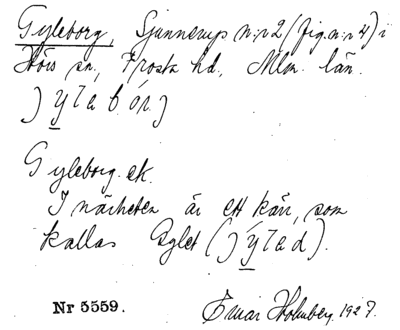 Gyleborg, Sjunnerup n:r 2 (fig. n:r 4) i
Hörs sn, Frosta hd, Mlm. län.
Gyleborg. ek.
I närheten är ett kär, som
kallas Gylet
Nr 5559.
Einar Holmberg. 1927.